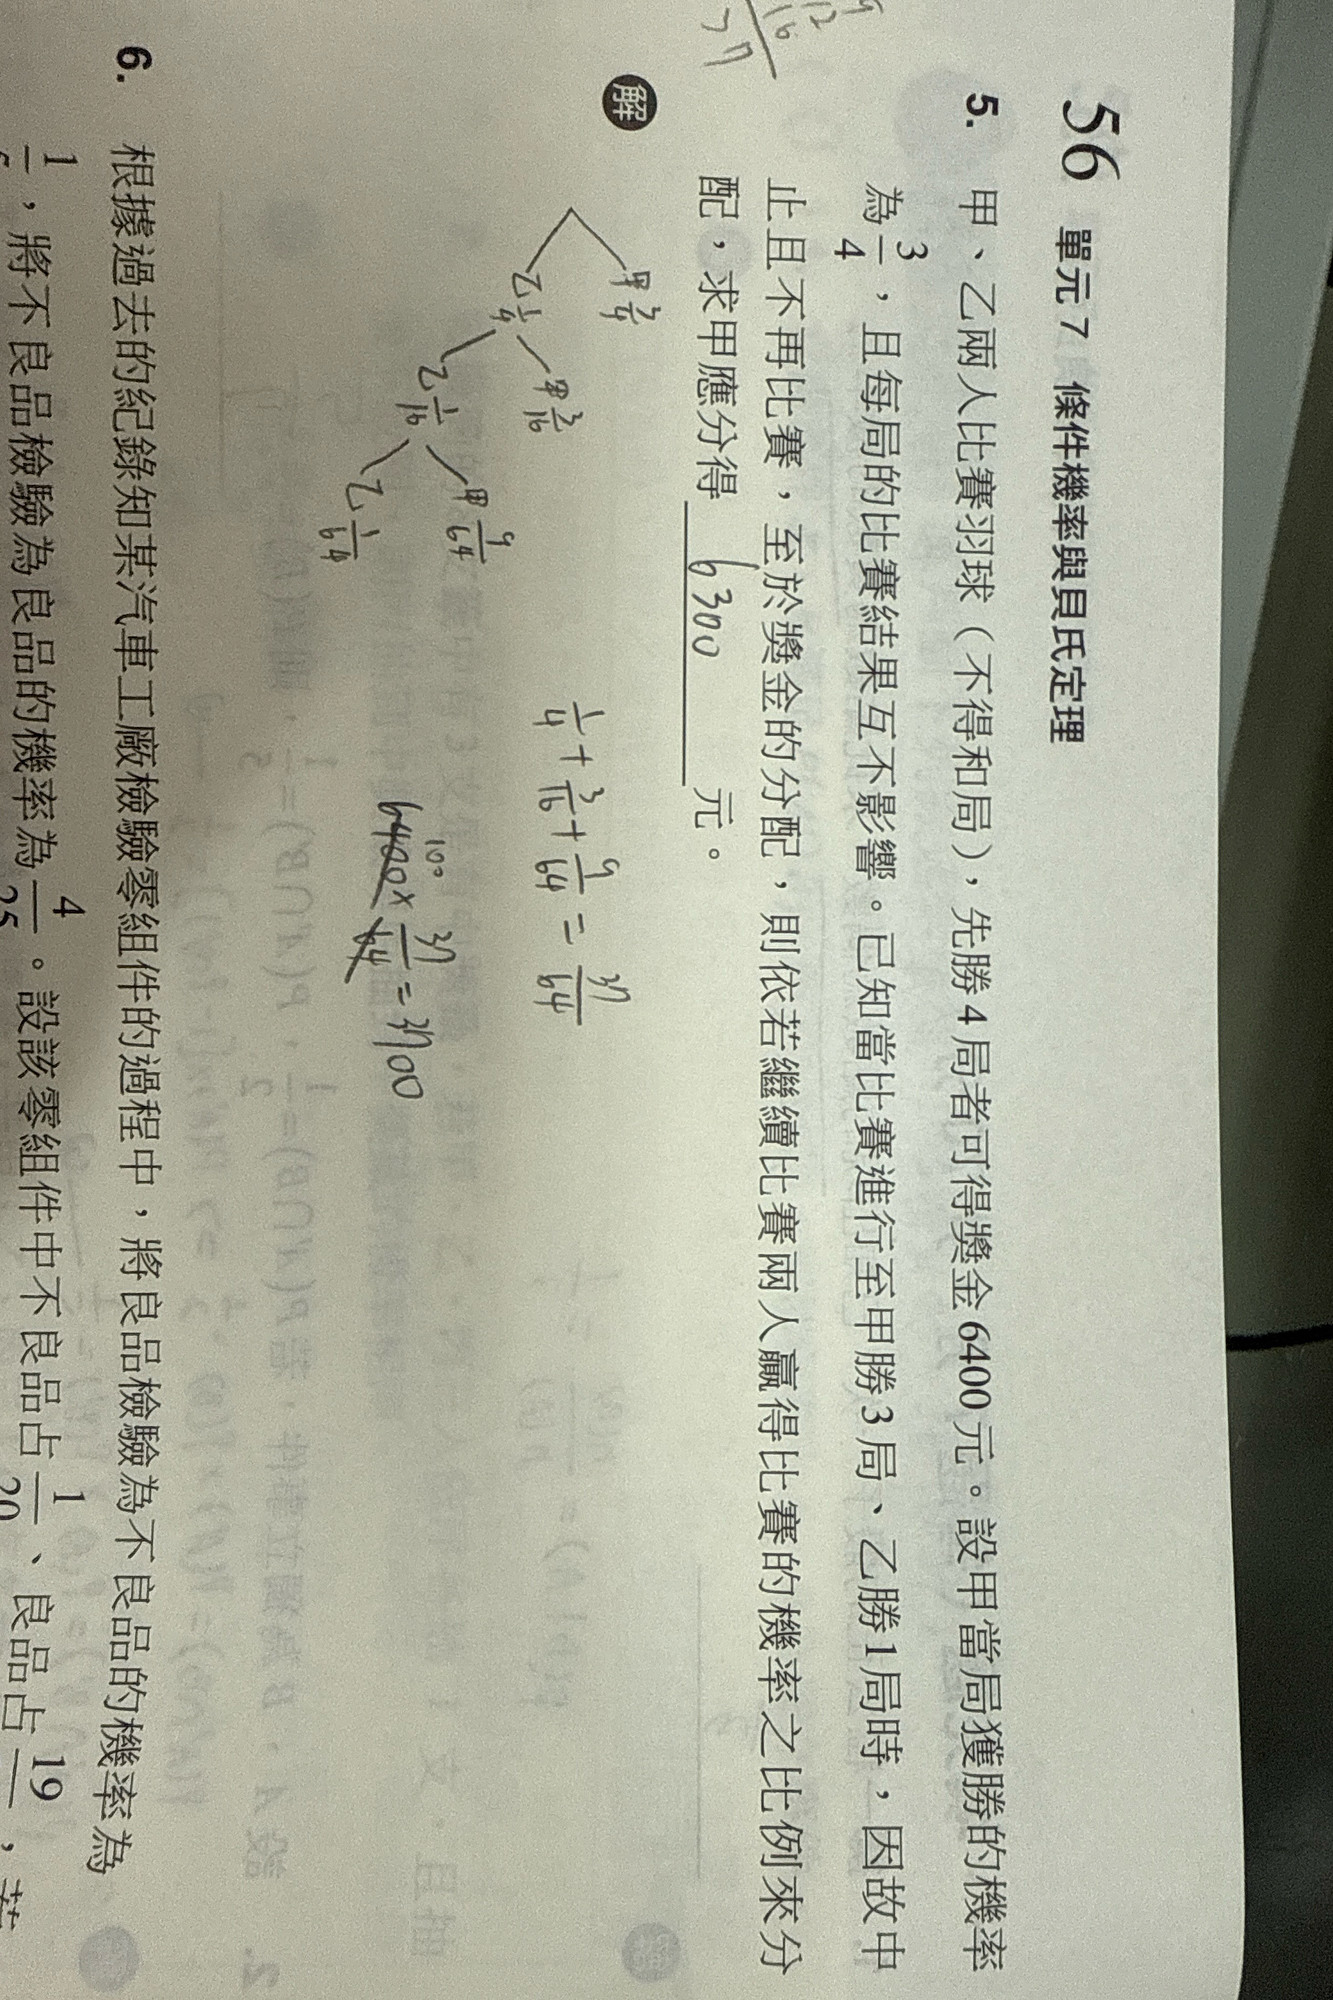 56 單元 7 條件機率與貝氏定理
5. 甲、乙兩人比賽羽球（不得和局），先勝 4 局者可得獎金 6400 元。設甲當局獲勝的機率
為 3/4，且每局的比賽結果互不影響。已知當比賽進行至甲勝 3 局、乙勝 1 局時，因故中
止且不再比賽，至於獎金的分配，則依若繼續比賽兩人贏得比賽的機率之比例來分
配，求甲應分得 6300 元。
解
甲 3/4
乙 1/4
甲 3/16
乙 1/16
甲 9/64
乙 1/64
1/4 + 3/16 + 9/64 = 37/64
100
6400 × 37/64 = 3700
6. 根據過去的紀錄知某汽車工廠檢驗零組件的過程中，將良品檢驗為不良品的機率為
，將不良品檢驗為良品的機率為 4/25。設該零組件中不良品占 1/20、良品占 19